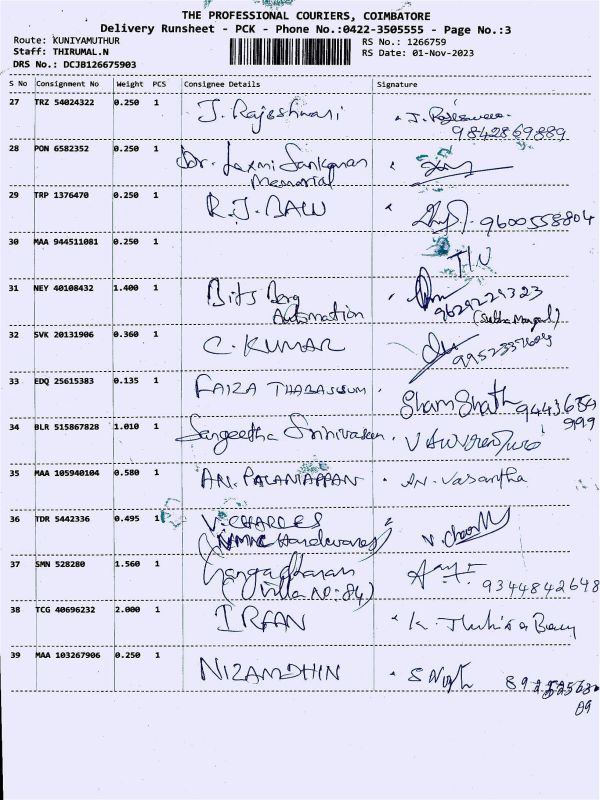 THE PROFESSIONAL COURIERS, COIMBATORE
Delivery Runsheet - PCK - Phone No.:0422-3505555 - Page No.:3
Route: KUNIYAMUTHUR
RS No.: 1266759
Staff: THIRUMAL.N
RS Date: 01-Nov-2023
DRS No.: DCJB126675903
S No Consignment No Weight PCS Consignee Details Signature
27 TRZ 54024322 0.250 1 J. Rajeshwari J. Rajeswari
9842869889
28 PON 6582352 0.250 1 Dr. Laxmi Sankaran
Memorial
29 TRP 1376470 0.250 1 R.J. BALU 9600558804
30 MAA 944511081 0.250 1
31 NEY 40108432 1.400 1 Bits Berg
Automation 9629229323
32 SVK 20131906 0.360 1 C. KUMAR
33 EDQ 25615383 0.135 1 FAIZA THABASSUM.
34 BLR 515867828 1.010 1 Sangeetha Srinivasan.
35 MAA 105940104 0.580 1 AN. PALANIAPPAN AN. Vasantha
36 TDR 5442336 0.495 1 V. CHARLES
37 SMN 528280 1.560 1 Gangadharan 9344842648
(Villa No:84)
38 TCG 40696232 2.000 1 IRFAN
39 MAA 103267906 0.250 1 NIZAMDHIN